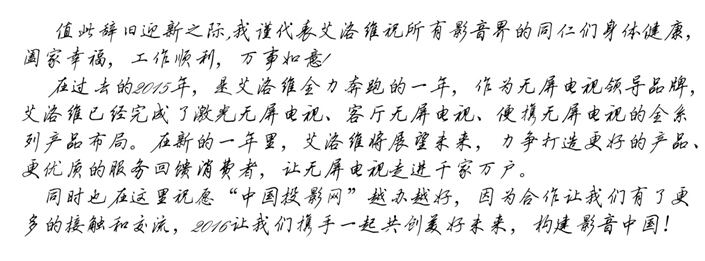 值此辞旧迎新之际,我谨代表艾洛维祝所有影音界的同仁们身体健康,
阖家幸福,工作顺利,万事如意!
在过去的2015年,是艾洛维全力奔跑的一年,作为无屏电视领导品牌,
艾洛维已经完成了激光无屏电视、客厅无屏电视、便携无屏电视的全系
列产品布局。在新的一年里,艾洛维将展望未来,力争打造更好的产品、
更优质的服务回馈消费者,让无屏电视走进千家万户。
同时也在这里祝愿“中国投影网”越办越好,因为合作让我们有了更
多的接触和交流,2016让我们携手一起共创美好未来,构建影音中国!